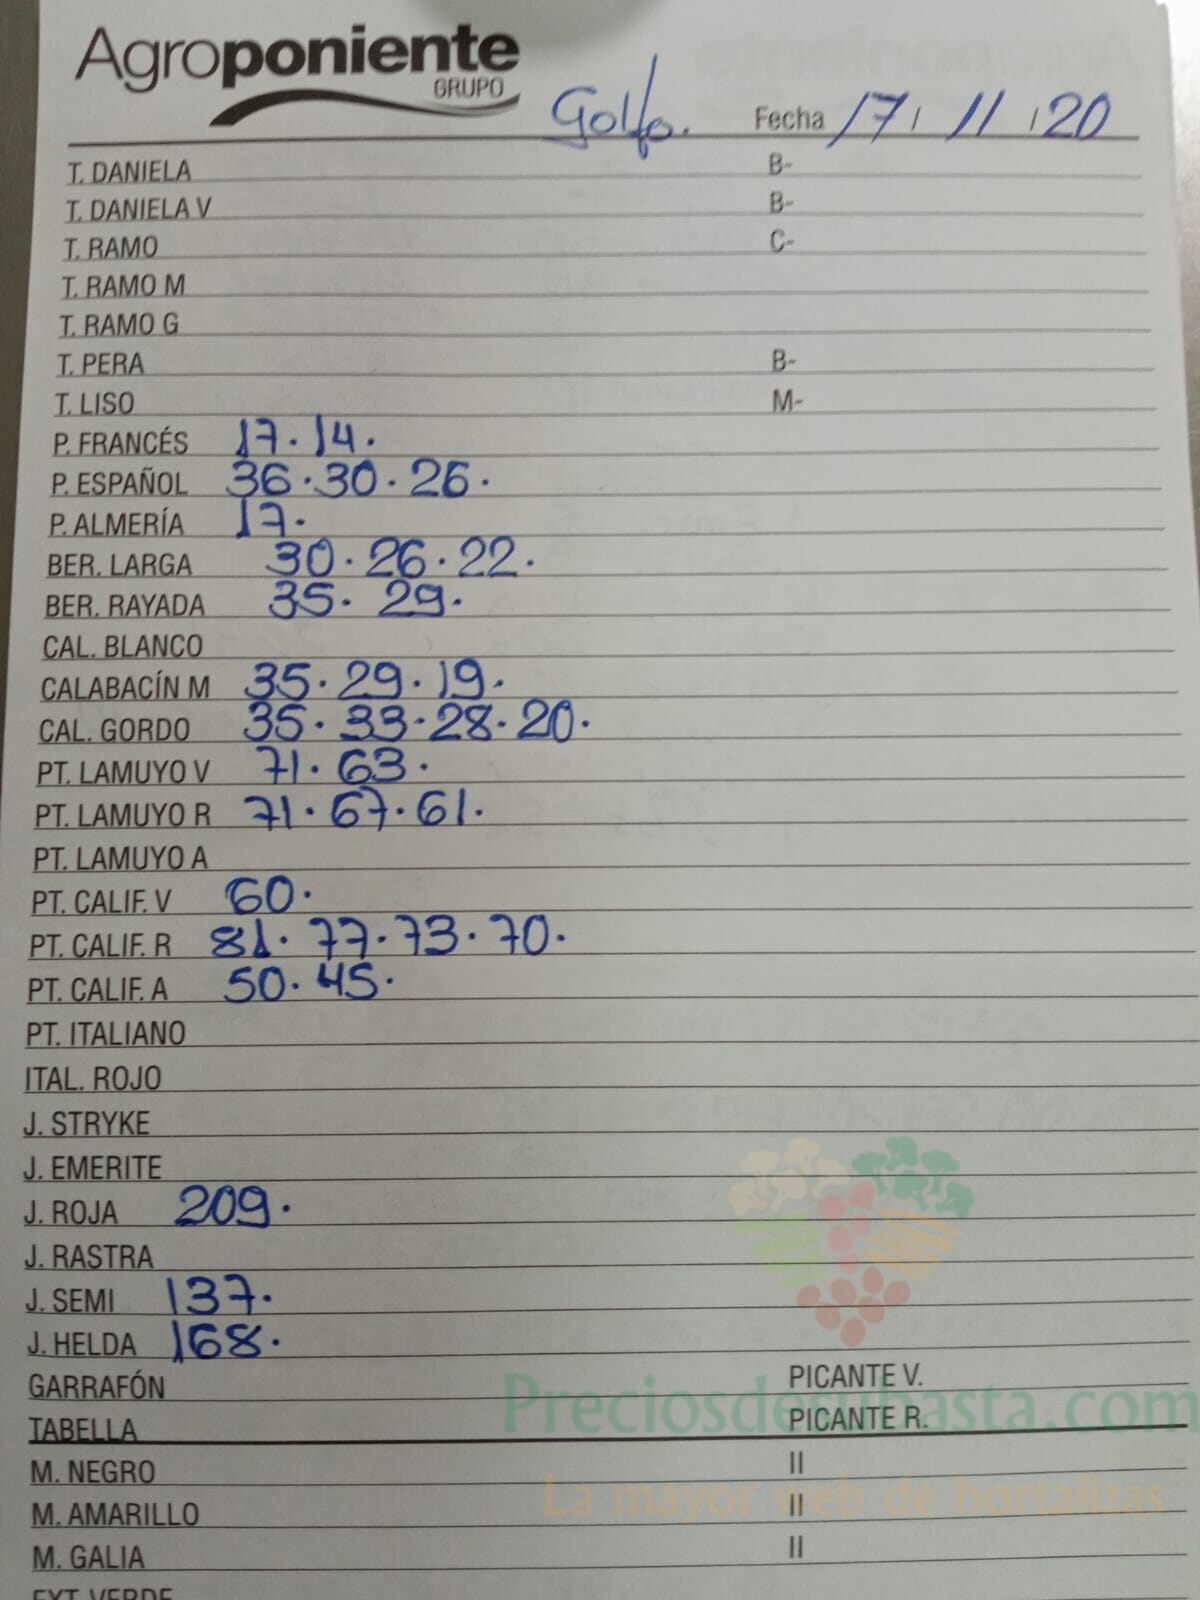 Agroponiente
GRUPO
Golfo. Fecha 17 / 11 / 20
T. DANIELA B-
T. DANIELA V B-
T. RAMO C-
T. RAMO M
T. RAMO G
T. PERA B-
T. LISO M-
P. FRANCÉS 17. 14.
P. ESPAÑOL 36. 30. 26.
P. ALMERÍA 17.
BER. LARGA 30. 26. 22.
BER. RAYADA 35. 29.
CAL. BLANCO
CALABACÍN M 35. 29. 19.
CAL. GORDO 35. 33. 28. 20.
PT. LAMUYO V 71. 63.
PT. LAMUYO R 71. 67. 61.
PT. LAMUYO A
PT. CALIF. V 60.
PT. CALIF. R 81. 77. 73. 70.
PT. CALIF. A 50. 45.
PT. ITALIANO
ITAL. ROJO
J. STRYKE
J. EMERITE
J. ROJA 209.
J. RASTRA
J. SEMI 137.
J. HELDA 168.
GARRAFÓN PICANTE V.
Preciosdesubasta.com
TABELLA PICANTE R.
M. NEGRO II
La mayor web de hortalizas
M. AMARILLO II
M. GALIA II
EXT. VERDE